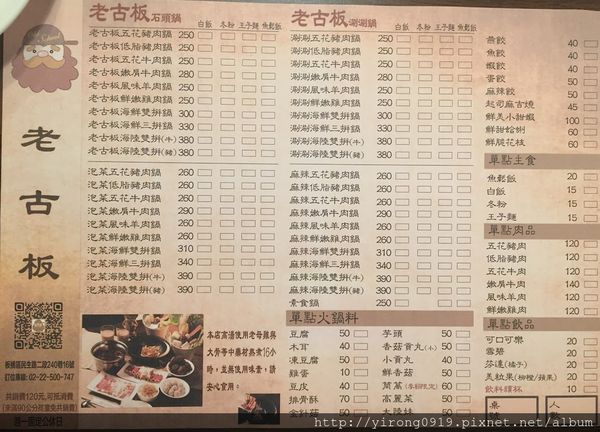 老古板
板橋區民生路二段240巷16號
訂位專線：02-22-500-747
共鍋費120元,可抵消費
(來滿90公分孩童免共鍋費)
週一固定公休日
老古板石頭鍋 白飯 冬粉 王子麵 魚鬆飯
老古板五花豬肉鍋 250
老古板低脂豬肉鍋 250
老古板五花牛肉鍋 250
老古板嫩肩牛肉鍋 280
老古板風味羊肉鍋 250
老古板鮮嫩雞肉鍋 250
老古板海鮮雙拼鍋 300
老古板海鮮三拼鍋 330
老古板海陸雙拼(牛) 380
老古板海陸雙拼(豬) 380
泡菜五花豬肉鍋 260
泡菜低脂豬肉鍋 260
泡菜五花牛肉鍋 260
泡菜嫩肩牛肉鍋 290
泡菜風味羊肉鍋 260
泡菜鮮嫩雞肉鍋 260
泡菜海鮮雙拼鍋 310
泡菜海鮮三拼鍋 340
泡菜海陸雙拼(牛) 390
泡菜海陸雙拼(豬) 390
本店高湯使用老母雞與
大骨等中藥材熬煮16小
時，並無使用味素，請
安心食用。
老古板涮涮鍋 白飯 冬粉 王子麵 魚鬆飯
涮涮五花豬肉鍋 250
涮涮低脂豬肉鍋 250
涮涮五花牛肉鍋 250
涮涮嫩肩牛肉鍋 280
涮涮風味羊肉鍋 250
涮涮鮮嫩雞肉鍋 250
涮涮海鮮雙拼鍋 300
涮涮海鮮三拼鍋 330
涮涮海陸雙拼(牛) 380
涮涮海陸雙拼(豬) 380
麻辣五花豬肉鍋 260
麻辣低脂豬肉鍋 260
麻辣五花牛肉鍋 260
麻辣嫩肩牛肉鍋 290
麻辣風味羊肉鍋 260
麻辣鮮嫩雞肉鍋 260
麻辣海鮮雙拼鍋 310
麻辣海鮮三拼鍋 340
麻辣海陸雙拼(牛) 390
麻辣海陸雙拼(豬) 390
素食鍋 250
單點火鍋料
豆腐 50
木耳 40
凍豆腐 50
雞蛋 10
豆皮 40
排骨酥 50
金針菇 50
芋頭 50
香菇貢丸(小) 50
小貢丸 40
鮮香菇 50
茼蒿(季節限定) 60
高麗菜 50
大陸妹 50
燕餃 40
魚餃 40
蝦餃 40
蛋餃 50
麻辣餃 50
起司麻吉燒 45
鮮美小甜蝦 100
鮮甜蛤蜊 60
鮮脆花枝 60
單點主食
魚鬆飯 20
白飯 15
冬粉 15
王子麵 15
單點肉品
五花豬肉 120
低脂豬肉 120
五花牛肉 120
嫩肩牛肉 140
風味羊肉 120
鮮嫩雞肉 120
單點飲品
可口可樂 30
雪碧 30
芬達(橘子) 30
美粒果(柳橙/蘋果) 30
飲料續杯 10
桌號
人數
http://yirong0919.pixnet.net/album